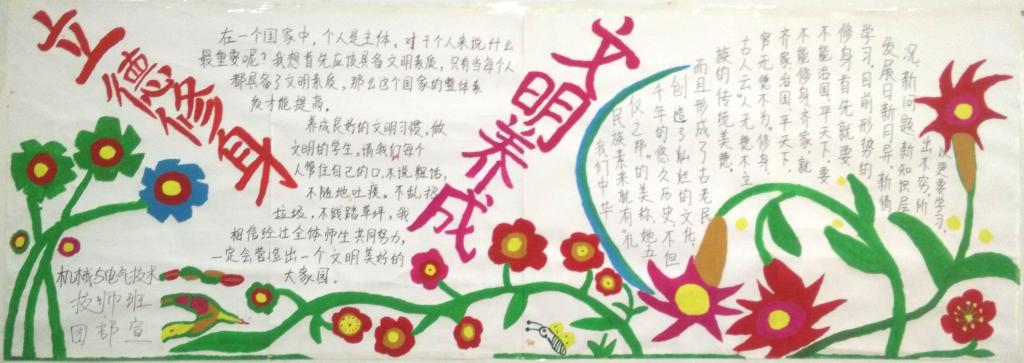 立德修身
在一个国家中，个人是主体，对于个人来说什么
最重要呢？我想首先应该具备文明素质，只有当每个人
都具备了文明素质，那么这个国家的整体素
质才能提高。
养成良好的文明习惯，做
文明的学生，请我们每个
人管住自己的口，不说粗话，
不随地吐痰。不乱扔
垃圾，不践踏草坪，我
相信经过全体师生共同努力，
一定会营造出一个文明美好的
大家园。
机械与电气技术
技师班
团部宣
文明养成
我们中华
民族素来就有“礼
仪之邦”的美称，她五
千年的悠久历史，不但
创造了灿烂的文化，
而且形成了古老民
族的传统美德。
古人云“人无德不立
官无德不为。修身，
齐家治国，平天下。
不能修身，齐家，就
不能治国，平天下，要
修身首先就要
学习。目前形势的
发展日新月异，新情
况，新问题，新知识层
出不穷，所
以更要学习。